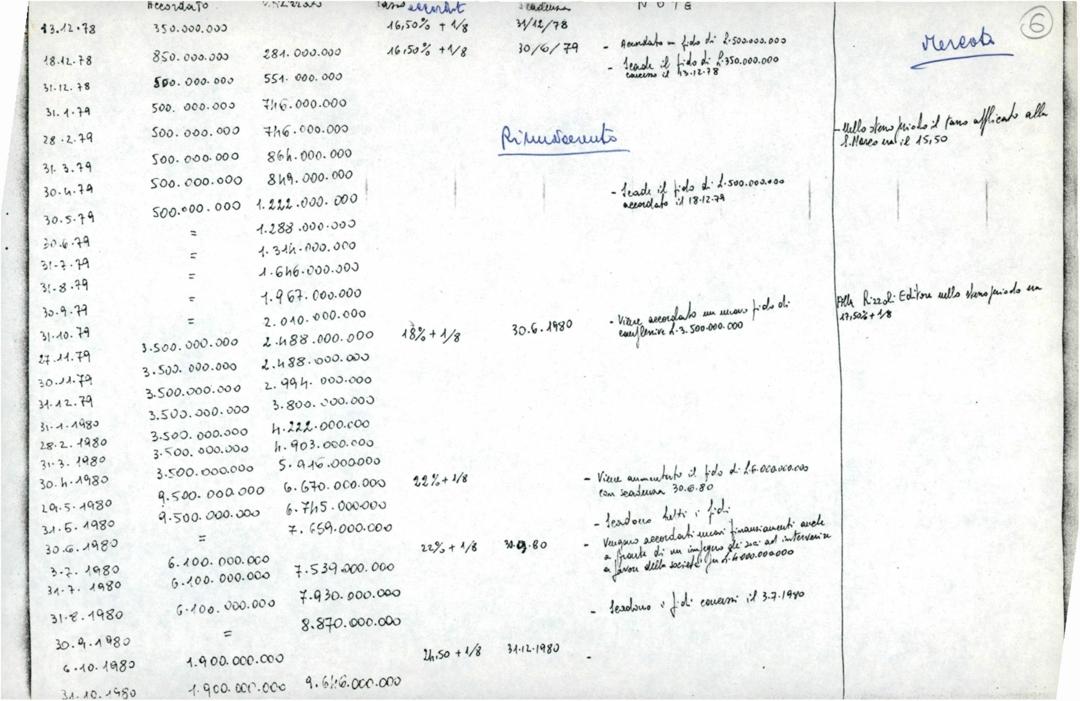 Accordato Tasso Scadenza NOTE
6
Mercato
13.12.78 350.000.000 16,50% + 1/8 31/12/78
18.12.78 850.000.000 281.000.000 16,50% + 1/8 30/6/79 - Accordato un fido di £.500.000.000
- Scade il fido di £.350.000.000
concesso il 13.12.78
31.12.78 500.000.000 551.000.000
31.1.79 500.000.000 746.000.000
28.2.79 500.000.000 746.000.000
Rimborsamento
- Nello stesso periodo il tasso applicato alla
S. Marco era il 15,50
31.3.79 500.000.000 864.000.000
30.4.79 500.000.000 849.000.000
30.5.79 500.000.000 1.222.000.000 - Scade il fido di £.500.000.000
accordato il 18.12.79
30.6.79 = 1.288.000.000
31.7.79 = 1.314.000.000
31.8.79 = 1.646.000.000
30.9.79 = 1.967.000.000
31.10.79 = 2.010.000.000
27.11.79 3.500.000.000 2.488.000.000 18% + 1/8 30.6.1980 - Viene accordato un nuovo fido di
complessive £.3.500.000.000
Alla Rizzoli Editore nello stesso periodo era
17,50% + 1/8
30.11.79 3.500.000.000 2.488.000.000
31.12.79 3.500.000.000 2.994.000.000
31.1.1980 3.500.000.000 3.800.000.000
28.2.1980 3.500.000.000 4.222.000.000
31.3.1980 3.500.000.000 4.903.000.000
30.4.1980 3.500.000.000 5.946.000.000
29.5.1980 9.500.000.000 6.670.000.000 22% + 1/8 - Viene aumentato il fido di £.6.000.000.000
con scadenza 30.6.80
31.5.1980 9.500.000.000 6.745.000.000
30.6.1980 = 7.659.000.000 - Scadono tutti i fidi
3.7.1980 6.100.000.000 22% + 1/8 80 - Vengono accordati nuovi finanziamenti anche
a fronte di un impegno dei soci ad intervenire
a favore della società per £.6.000.000.000
31.7.1980 6.100.000.000 7.539.000.000
31.8.1980 6.100.000.000 7.930.000.000
30.9.1980 = 8.870.000.000 - Scadono i fidi concessi il 3.7.1980
6.10.1980 1.900.000.000 24,50 + 1/8 31.12.1980 -
31.10.1980 1.900.000.000 9.646.000.000